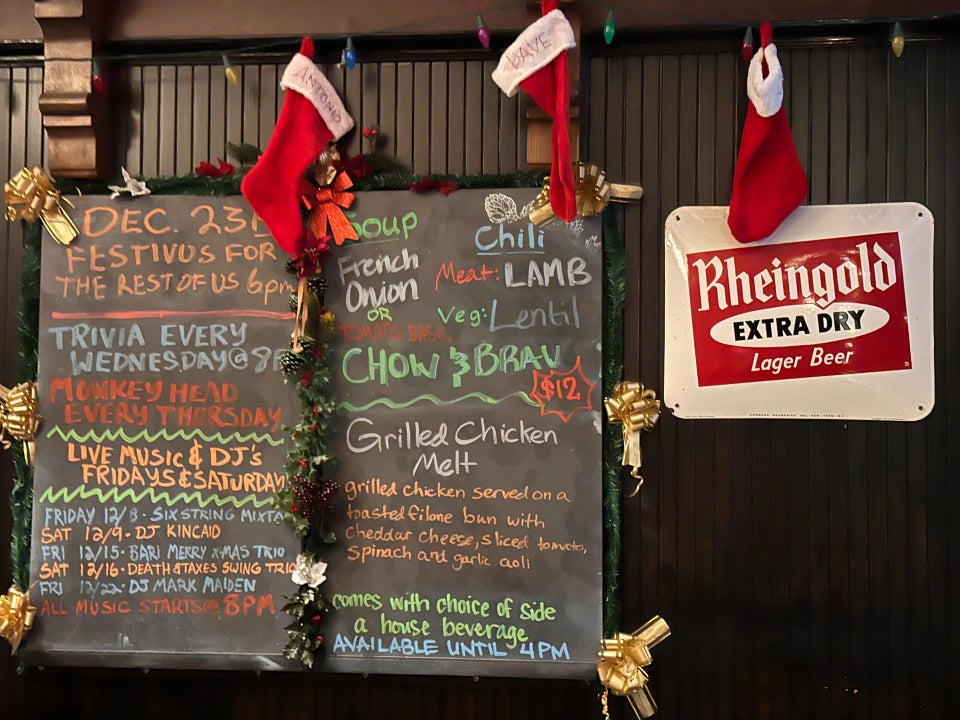 ANTONIO
DAVE
DEC. 23
FESTIVUS FOR
THE REST OF US 6pm
TRIVIA EVERY
WEDNESDAY@ 8
MONKEY HEAD
EVERY THURSDAY
LIVE MUSIC & DJ's
FRIDAYS & SATURDAY
FRIDAY 12/8 - SIX STRING
SAT 12/9 - DJ KINCAID
FRI 12/15 - BARI MERRY X-MAS TRIO
SAT 12/16 - DEATH & TAXES SWING TRIO
FRI 12/22 - DJ MARK MAIDEN
ALL MUSIC STARTS @ 8PM
Soup
French
Onion
OR
TOMATO BASIL
Chili
Meat: LAMB
Veg: Lentil
CHOW & BRAU
$12
Grilled Chicken
Melt
grilled chicken served on a
toasted filone bun with
cheddar cheese, sliced tomatoes,
spinach and garlic aoli
comes with choice of side
a house beverage
AVAILABLE UNTIL 4PM
Rheingold
EXTRA DRY
Lager Beer